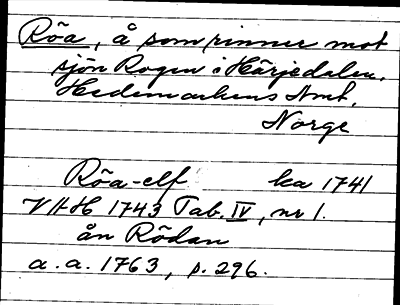 Röa, å som rinner mot
sjön Rogen i Härjedalen.
Hedemarkens Amt,
Norge
Röa-elf ka 1741
VAH 1743 Tab. IV, nr 1.
ån Rödan
a. a. 1763, p. 296.